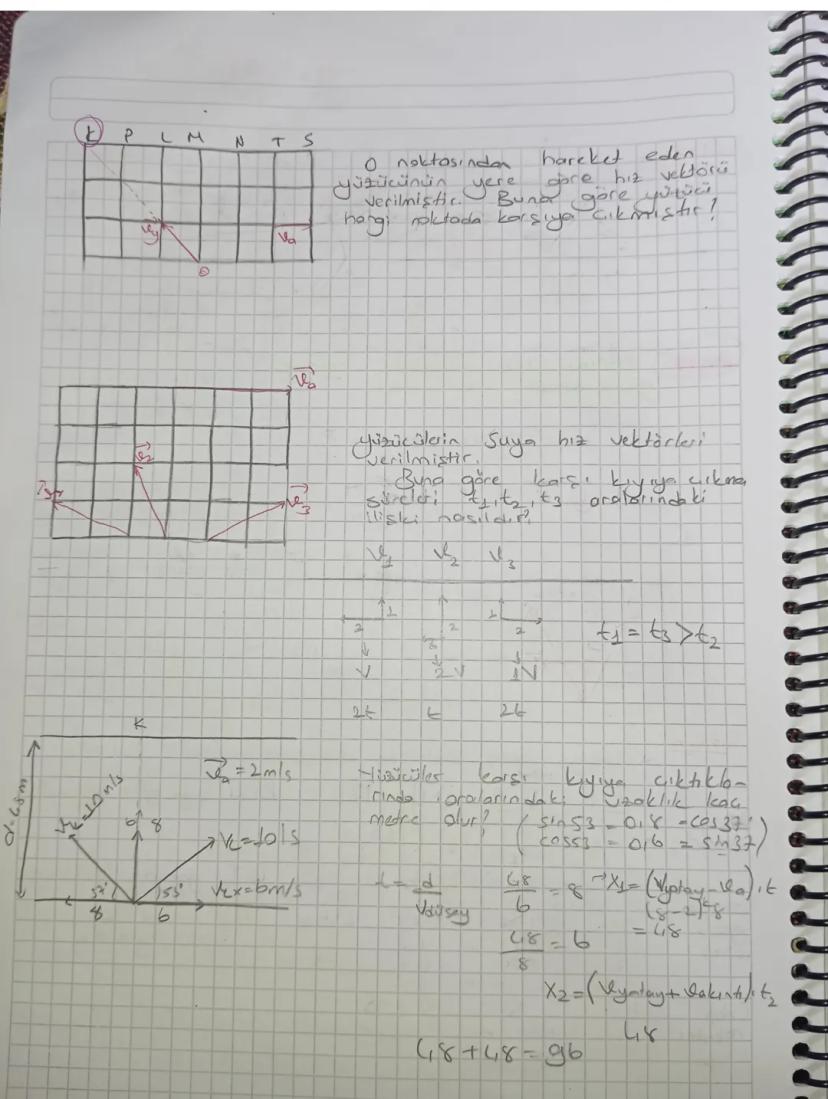 K P L M N T S
O noktasından hareket eden
yüzücünün yere göre hız vektörü
verilmiştir. Buna göre yüzücü
hangi noktada karşıya çıkmıştır?
Vy
Va
O
Va
V2
V3
yüzücülerin suya hız vektörleri
verilmiştir.
Buna göre karşı kıyıya çıkma
süreleri t1, t2, t3 aralarındaki
ilişki nasıldır?
V1 V2 V3
1 2 2 1 2
V 2V 1V
t1 = t3 > t2
2t t 2t
K
Va = 2m/s
d = 48m
10m/s
6 8
VL = 10/s
VLx = 6m/s
53°
8 6
Yüzücüler karşı kıyıya çıktıkla-
rında aralarındaki uzaklık kaç
metre olur? (sin53 = 0,8 = cos37
cos53 = 0,6 = sin37)
t = d / Vdüşey
48/6 = 8 → X1 = (Vyatay - Va).t
(8-2) 8
= 48
48/8 = 6
X2 = (Vyatay + Vakıntı).t2
48
48 + 48 = 96